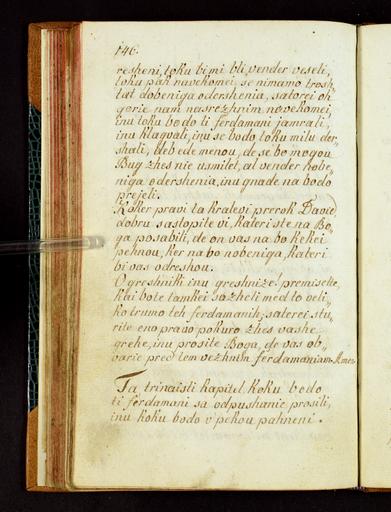 146.
resheni, toku bi mi bli, vender veseli,
toku pak navekomei se nimamo trosh-
tat dobeniga odershenia, satorei oh
gorie nam nasrezhnim novekomei,
inu toku bodo li ferdamani jamrali,
inu klagvali, inu se bodo toku milu der-
shali, de b ede menou, de se bo mogou
Bug zhes nie usmilet, al vender kobe-
niga odershenia, inu gnade na bodo
prejeli.
Koker pravi ta kralevi prerok David,
dobru sastopite vi, kateri ste na Bo-
ga posabili, de on vas na bo kekei
pehnou, ker na bo nobeniga, kateri
bi vas odreshou.
O greshniki inu greshnize! premislite,
kai bote tamkei sazheli med to veli-
ko trumo teh ferdamanih; satorei, stu-
rite eno pravo pokuro zhes vashe
grehe, inu prosite Boga, de vas ob-
varie pred tem vezhnim ferdamaniam. Amen.
Ta trinaisti kapitel. Koku bodo
ti ferdamani sa odpushanie prosili,
inu koku bodo v pekou pahneni.